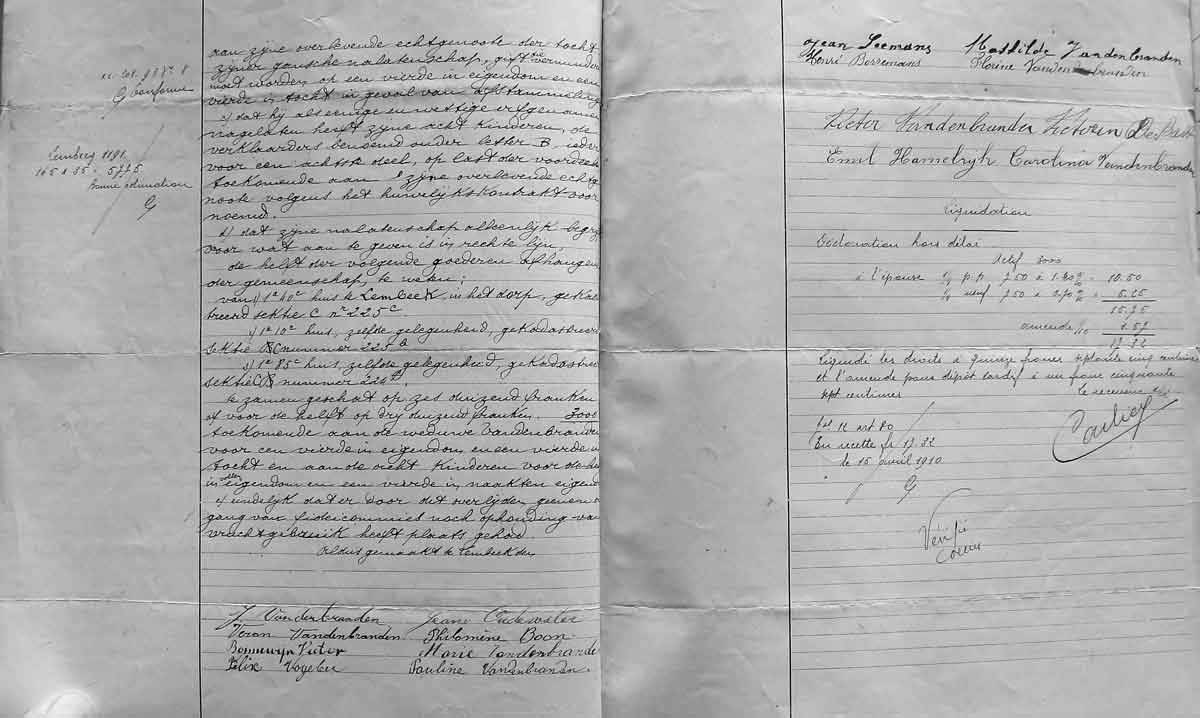 G conforme
Lembecq 1191.
165 x 35 = 5775
Bonne estimation
G
aan zijne overlevende echtgenoote der tocht
zijner gansche nalatenschap, gift te verminder
moet worden op een vierde in eigendom en een
vierde in tocht in geval van afstammeling
c) dat hij als eenige en wettige erfgenamen
nagelaten heeft zijne acht kinderen, de
verklaarders benoemd onder letter B, ieder
voor een achtste deel, op last der voordeelen
toekomende aan zijne overlevende echtge
noote volgens het huwelijkskontrakt voor
noemd.
d) dat zijne nalatenschap alleenlijk begrijpt
voor wat aan te geven is in rechte lijn,
de helft der volgende goederen afhangen
der gemeenschap, te weten:
van 1) 1a 40c huis te Lembeek, in het dorp, gekadas
treerd sektie C no 225c.
2) 1a 10c huis, zelfde gelegenheid, gekadastreer
sektie C nummer 225
3) 1a 85c huis, zelfde gelegenheid, gekadastree
sektie C nummer 224
te zamen geschat op zes duizend franken
of voor de helft op drij duizend franken. 3000
toekomende aan de weduwe Vandenbranden
voor een vierde in eigendom en een vierde in
tocht en aan de acht kinderen voor de helft
in vollen eigendom en een vierde in naakten eigend
e) eindelijk dat er door dit overlijden geenen over
gang van fideicommis noch ophouding van
vruchtgebruik heeft plaats gehad.
Aldus gemaakt te Lembeek den
J. Vanderbranden Jeane Oudewater
Veran Vandenbranden Philomène Boon
Bommeryn Victor Marie Vandenbrande
Felix Vogeleer Pauline Vandenbranden.
Jean Seemans Mathilde Vandenbranden
Henri Borremans Florine Vandenbranden
Victor Vandenbranden Victorin
Emiel Hamelrijk Carolina Vandenbranden
Liquidation
Déclaration hors délai
Actif 3000
à l'épouse 1/4 p.p. 750 à 1.40 % = 10.50
1/4 usuf 750 à 0.70 % = 5.25
15,75
amende 1/10 1.57
17.32
Liquidé les droits à quinze francs septante cinq centimes
et l'amende pour dépôt tardif à un franc cinquante
sept centimes
Le receveur
En recette fr 17.32
le 15 avril 1910
G
Vérifié